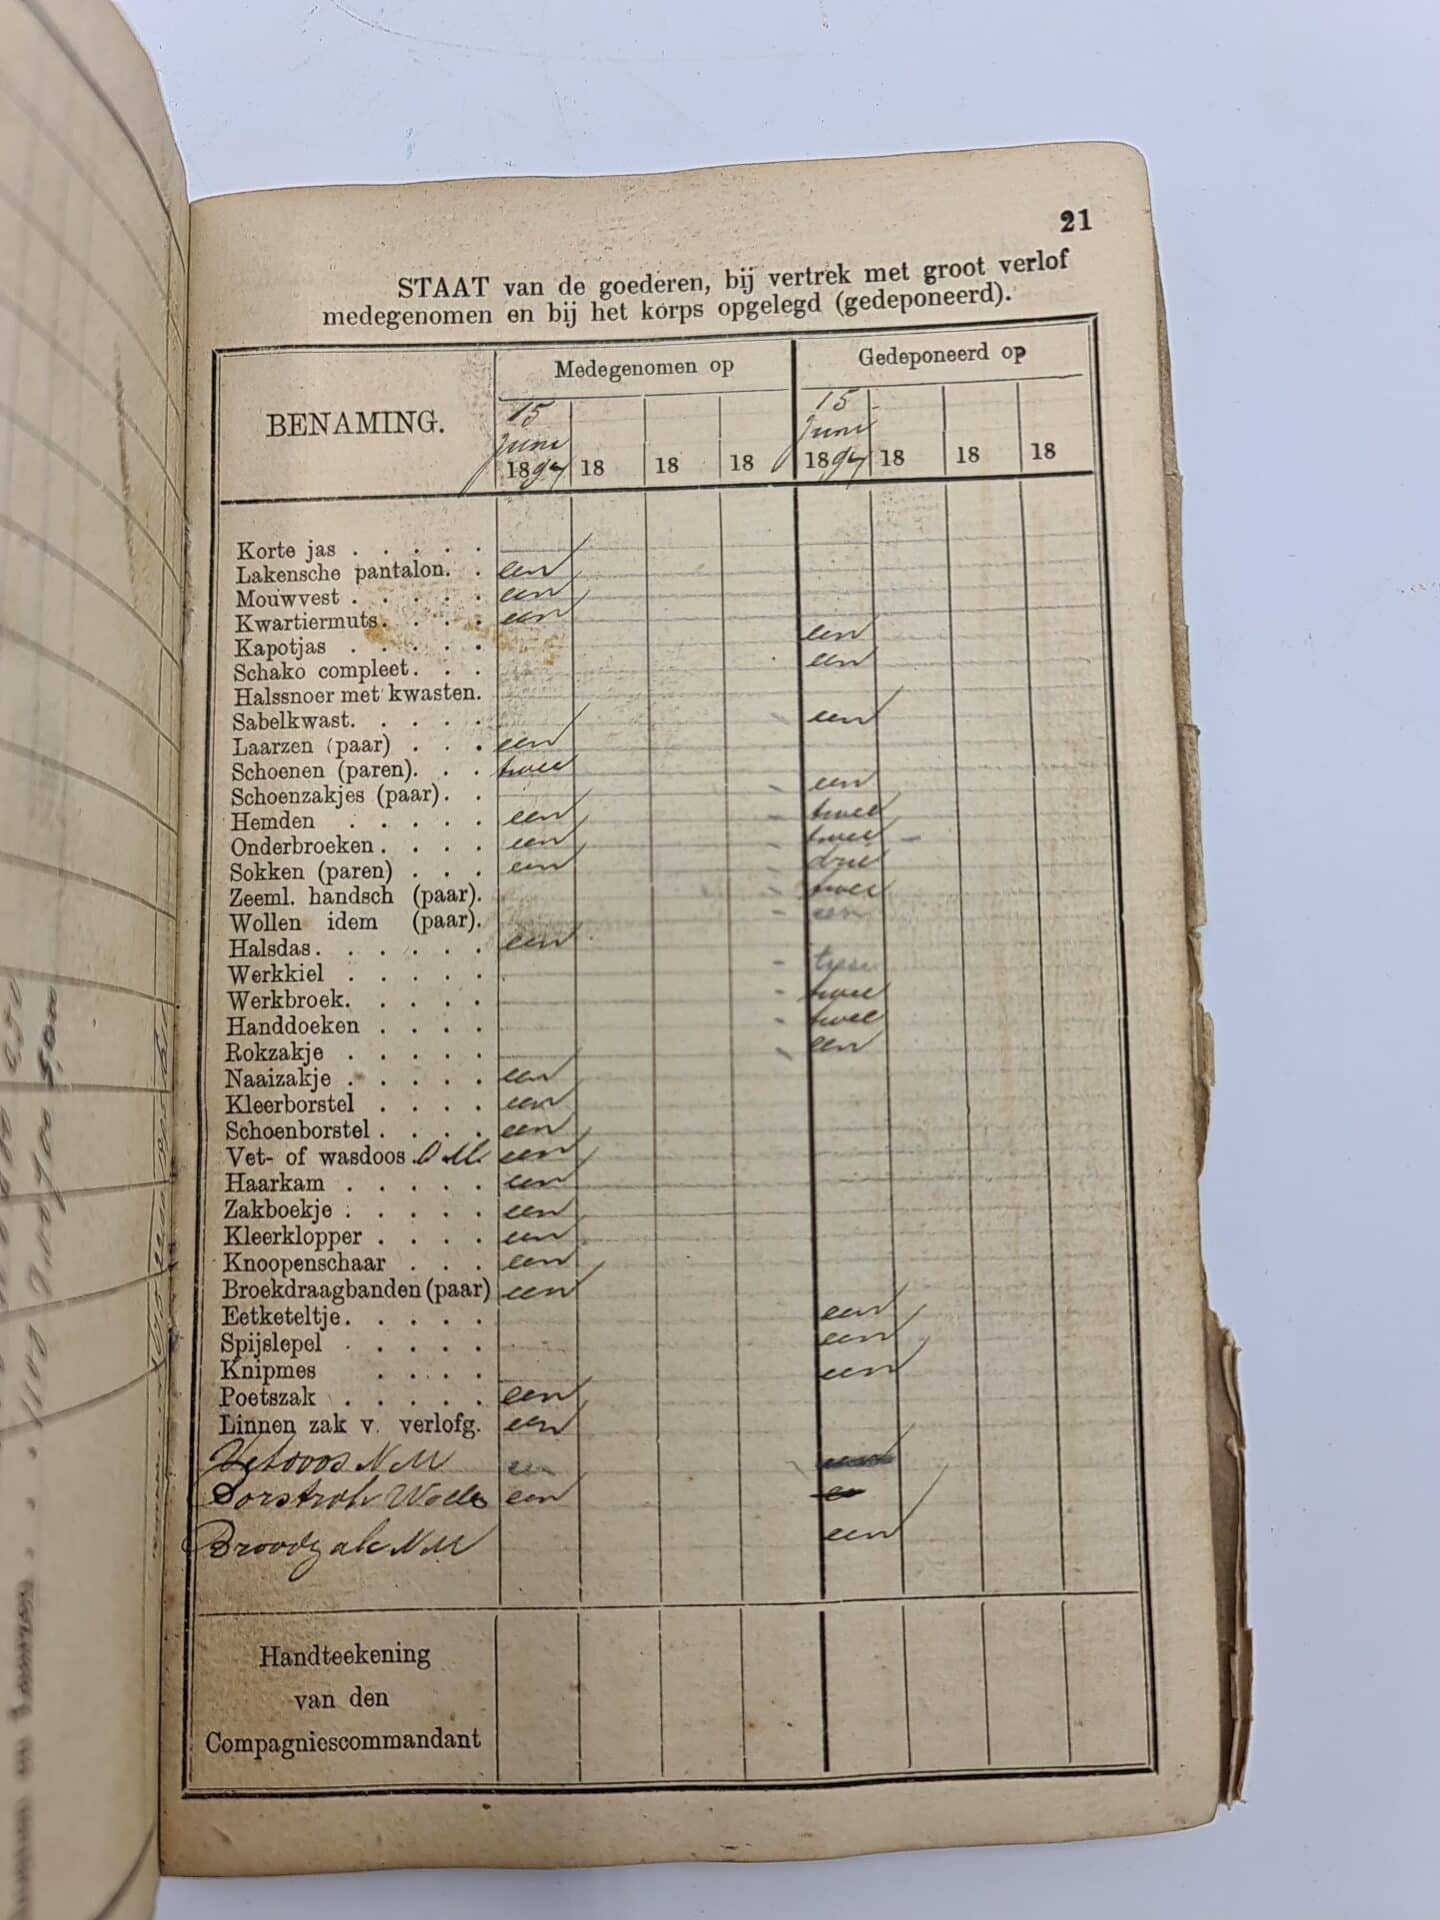 21
STAAT van de goederen, bij vertrek met groot verlof
medegenomen en bij het korps opgelegd (gedeponeerd).
BENAMING. Medegenomen op Gedeponeerd op
15 15
Juni Juni
1897 18 18 18 1897 18 18 18
Korte jas . . . . .
Lakensche pantalon. . een
Mouwvest . . . . . een
Kwartiermuts. . . . een
Kapotjas . . . . . een
Schako compleet. . . een
Halssnoer met kwasten.
Sabelkwast. . . . . een
Laarzen (paar) . . . een
Schoenen (paren). . . twee
Schoenzakjes (paar). . een
Hemden . . . . . een twee
Onderbroeken. . . . een twee
Sokken (paren) . . . een drie
Zeeml. handsch (paar). twee
Wollen idem (paar). een
Halsdas. . . . . . een
Werkkiel . . . . . twee
Werkbroek. . . . . twee
Handdoeken . . . . twee
Rokzakje . . . . . een
Naaizakje . . . . . een
Kleerborstel . . . . een
Schoenborstel . . . . een
Vet- of wasdoos O.M. een
Haarkam . . . . . een
Zakboekje . . . . . een
Kleerklopper . . . . een
Knoopenschaar . . . een
Broekdraagbanden (paar) een
Eetketeltje. . . . . een
Spijslepel . . . . . een
Knipmes . . . . een
Poetszak . . . . . een
Linnen zak v. verlofg. een
Vetdoos N M een
een
Broodzak N M een
Handteekening
van den
Compagniescommandant